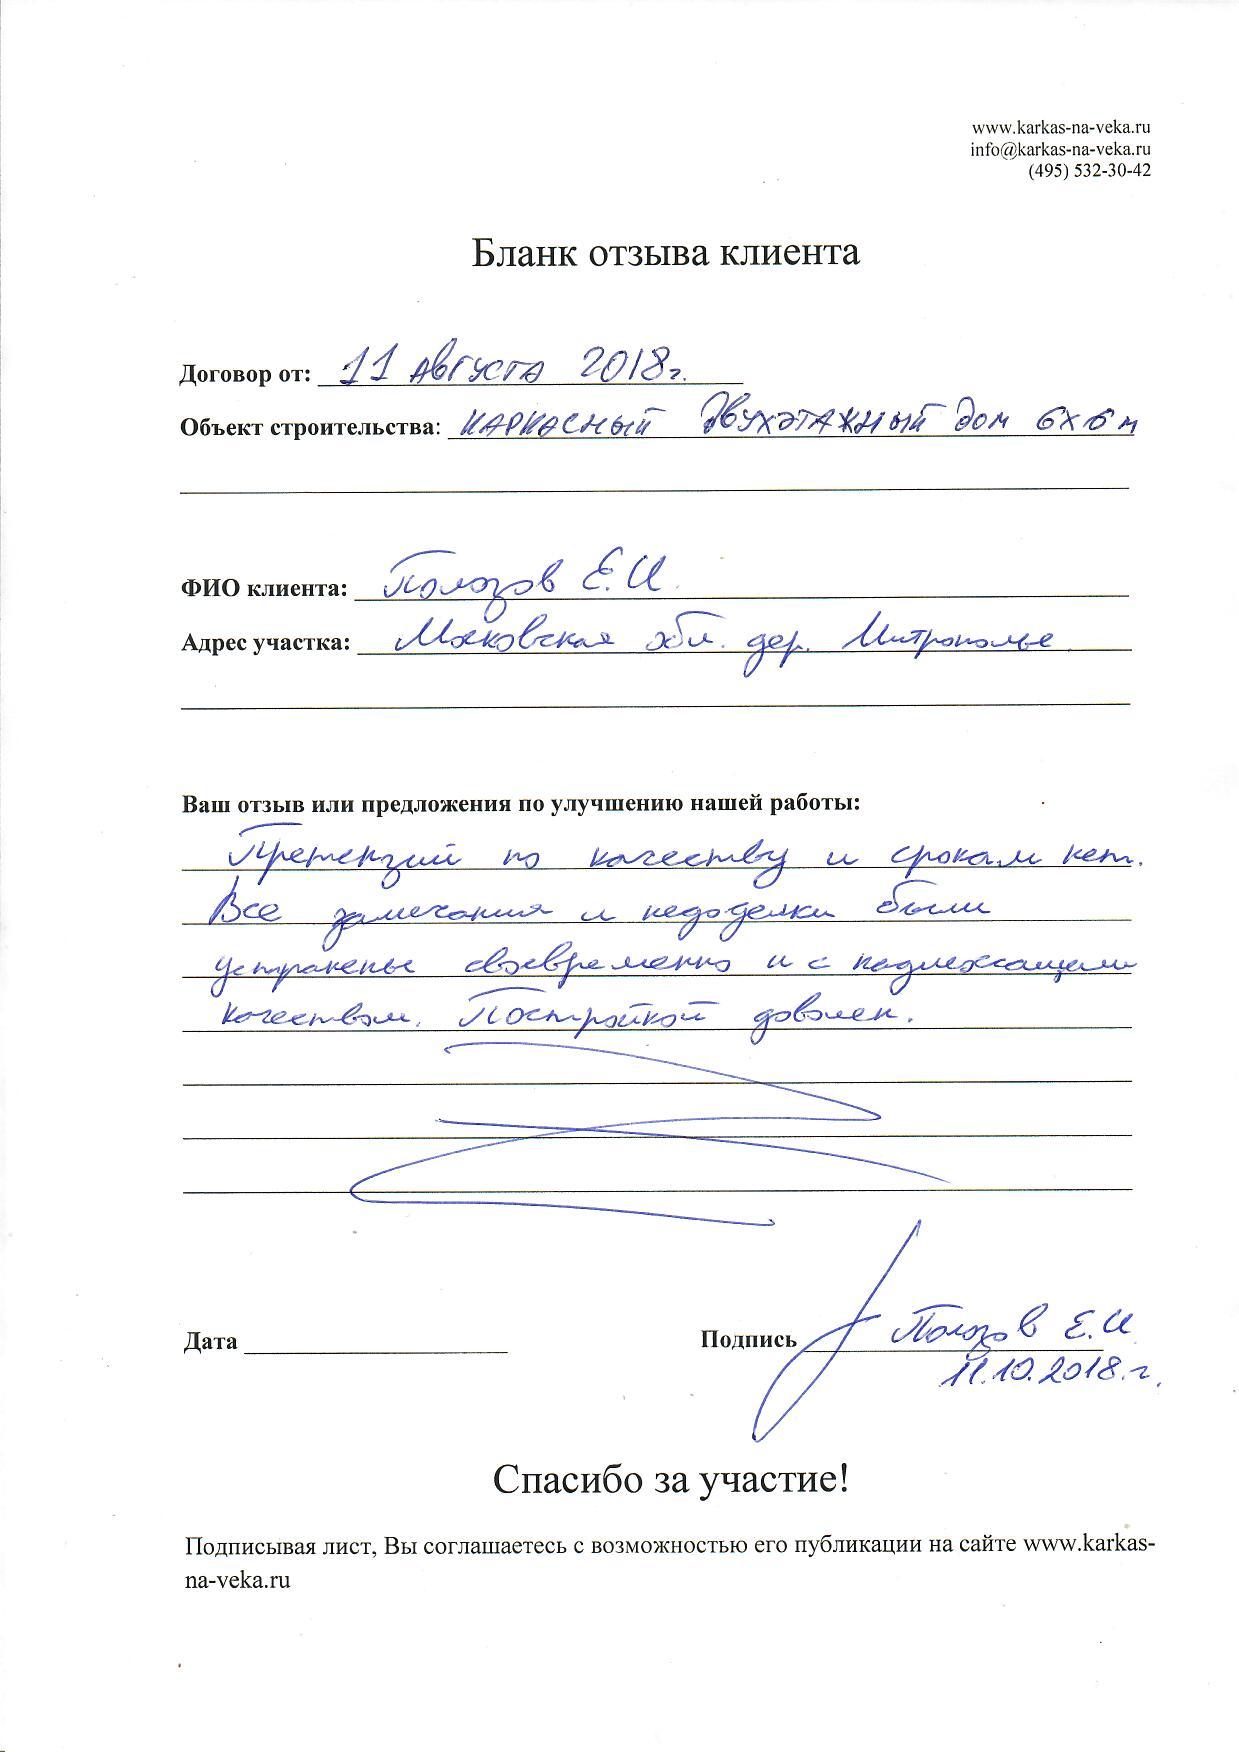 www.karkas-na-veka.ru
info@karkas-na-veka.ru
(495) 532-30-42
Бланк отзыва клиента
Договор от: 11 августа 2018г.
Объект строительства: КАРКАСНЫЙ ДВУХЭТАЖНЫЙ ДОМ 6х6 м
ФИО клиента: Полозов Е.И.
Адрес участка: Московская обл. дер. Митрополье
Ваш отзыв или предложения по улучшению нашей работы:
Претензий по качеству и срокам нет.
Все замечания и недоделки были
устранены своевременно и с надлежащим
качеством. Постройкой доволен.
Дата Подпись Полозов Е.И
11.10.2018.г.
Спасибо за участие!
Подписывая лист, Вы соглашаетесь с возможностью его публикации на сайте www.karkas-
na-veka.ru